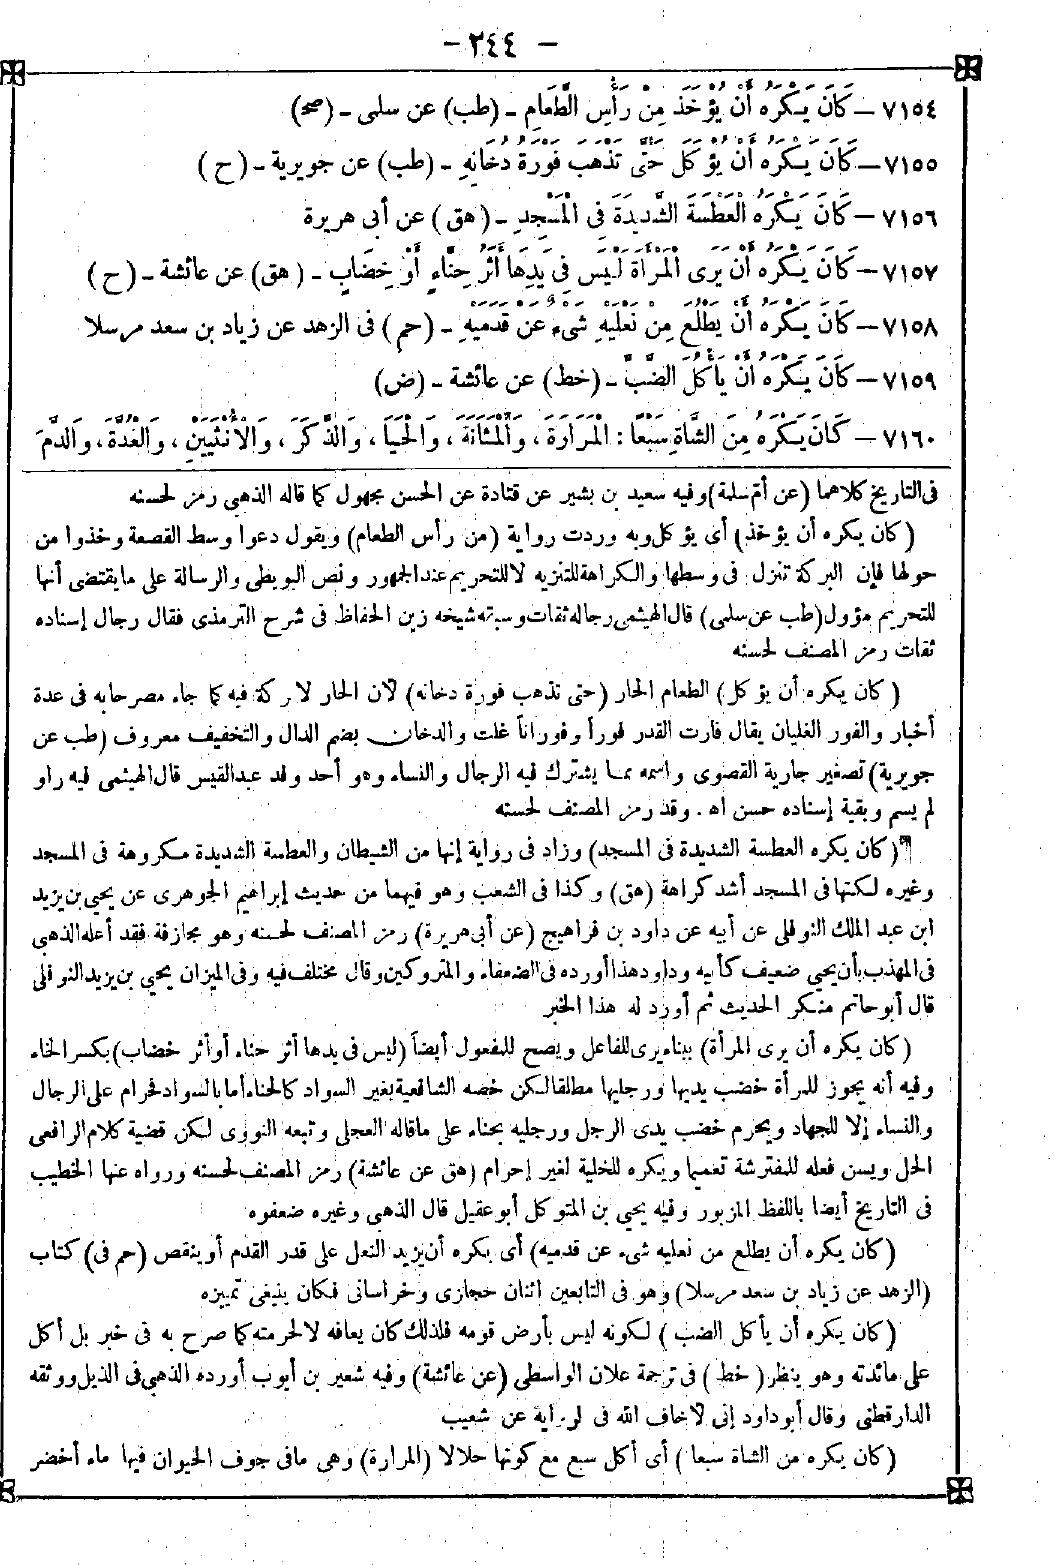 — ٢٤٤ —
٧١٥٤ — كَانَ يَكْرَهُ أَنْ يُؤْخَذَ مِنْ رَأْسِ الطَّعَامِ ـ (طب) عن سلمى ـ (صح)
٧١٥٥ — كَانَ يَكْرَهُ أَنْ يُؤْكَلَ حَتَّى تَذْهَبَ فَوْرَةُ دُخَانِهِ ـ (طب) عن جويرية ـ (ح)
٧١٥٦ — كَانَ يَكْرَهُ الْعَطْسَةَ الشَّدِيدَةَ فِى الْمَسْجِدِ ـ (هق) عن أبى هريرة
٧١٥٧ — كَانَ يَكْرَهُ أَنْ يَرَى الْمَرْأَةَ لَيْسَ فِى يَدِهَا أَثَرُ حِنَّاءٍ أَوْ خِضَابٍ ـ (هق) عن عائشة ـ (ح)
٧١٥٨ — كَانَ يَكْرَهُ أَنْ يَطْلُعَ مِنْ نَعْلَيْهِ شَىْءٌ عَنْ قَدَمَيْهِ ـ (حم) فى الزهد عن زياد بن سعد مرسلا
٧١٥٩ — كَانَ يَكْرَهُ أَنْ يَأْكُلَ الضَّبَّ ـ (خط) عن عائشة ـ (ض)
٧١٦٠ — كَانَ يَكْرَهُ مِنَ الشَّاةِ سَبْعًا : الْمَرَارَةَ ، وَالْمَثَانَةَ ، وَالْحَيَا ، وَالذَّكَرَ ، وَالْأُنْثَيَيْنِ ، وَالْغُدَّةَ ، وَالدَّمَ
فى التاريخ كلاهما (عن أم سلمة) وفيه سعيد بن بشير عن قتادة عن الحسن مجهول كما قاله الذهبى رمز لحسنه
(كان يكره أن يؤخذ) أى يؤكل وبه وردت رواية (من رأس الطعام) ويقول دعوا وسط القصعة وخذوا من
حولها فإن البركة تنزل فى وسطها والكراهة للتنزيه لا للتحريم عند الجمهور ونص البويطى والرسالة على ما يقتضى أنها
للتحريم مؤول (طب عن سلمى) قال الهيثمى رجاله ثقات وسبقه شيخه زين الحفاظ فى شرح الترمذى فقال رجال إسناده
ثقات رمز المصنف لحسنه
(كان يكره أن يؤكل) الطعام الحار (حتى تذهب فورة دخانه) لأن الحار لا بركة فيه كما جاء مصرحا به فى عدة
أخبار والفور الغليان يقال فارت القدر فوراً وفوراناً غلت والدخان بضم الدال والتخفيف معروف (طب عن
جويرية) تصغير جارية القصوى واسمه مما يشترك فيه الرجال والنساء وهو أحد وفد عبد القيس قال الهيثمى فيه راو
لم يسم وبقية إسناده حسن اهـ . وقد رمز المصنف لحسنه
(كان يكره العطسة الشديدة فى المسجد) وزاد فى رواية إنها من الشيطان والعطسة الشديدة مكروهة فى المسجد
وغيره لكنها فى المسجد أشد كراهة (هق) وكذا فى الشعب وهو فيهما من حديث إبراهيم الجوهرى عن يحيى بن يزيد
ابن عبد الملك النوفلى عن أبيه عن داود بن فراهيج (عن أبى هريرة) رمز المصنف لحسنه وهو مجازفة فقد أعله الذهبى
فى المهذب بأن يحيى ضعيف كأبيه وداود هذا أورده فى الضعفاء والمتروكين وقال مختلف فيه وفى الميزان يحيى بن يزيد النوفلى
قال أبو حاتم منكر الحديث ثم أورد له هذا الخبر
(كان يكره أن يرى المرأة) ببناء يرى للفاعل ويصح للمفعول أيضاً (ليس فى يدها أثر حناء أو أثر خضاب) بكسر الخاء
وفيه أنه يجوز للمرأة خضب يديها ورجليها مطلقا لكن خصه الشافعية بغير السواد كالحناء أما بالسواد فحرام على الرجال
والنساء إلا للجهاد ويحرم خضب يدى الرجل ورجليه بحناء على ماقاله العجلى وتبعه النووى لكن قضية كلام الرافعى
الحل ويسن فعله للمفترشة تعميما ويكره للخلية لغير إحرام (هق عن عائشة) رمز المصنف لحسنه ورواه عنها الخطيب
فى التاريخ أيضا باللفظ المزبور وفيه يحيى بن المتوكل أبو عقيل قال الذهبى وغيره ضعفوه
(كان يكره أن يطلع من نعليه شىء عن قدميه) أى يكره أن يزيد النعل على قدر القدم أو ينقص (حم فى) كتاب
(الزهد عن زياد بن سعد مرسلا) وهو فى التابعين اثنان حجازى وخراسانى فكان ينبغى تمييزه
(كان يكره أن يأكل الضب) لكونه ليس بأرض قومه فلذلك كان يعافه لا لحرمته كما صرح به فى خبر بل أكل
على مائدته وهو ينظر (خط) فى ترجمة علان الواسطى (عن عائشة) وفيه شعير بن أيوب أورده الذهبى فى الذيل ووثقه
الدارقطنى وقال أبو داود إنى لاخاف الله فى الرواية عن شعيب
(كان يكره من الشاة سبعا) أى أكل سبع مع كونها حلالا (المرارة) وهى مافى جوف الحيوان فيها ماء أخضر